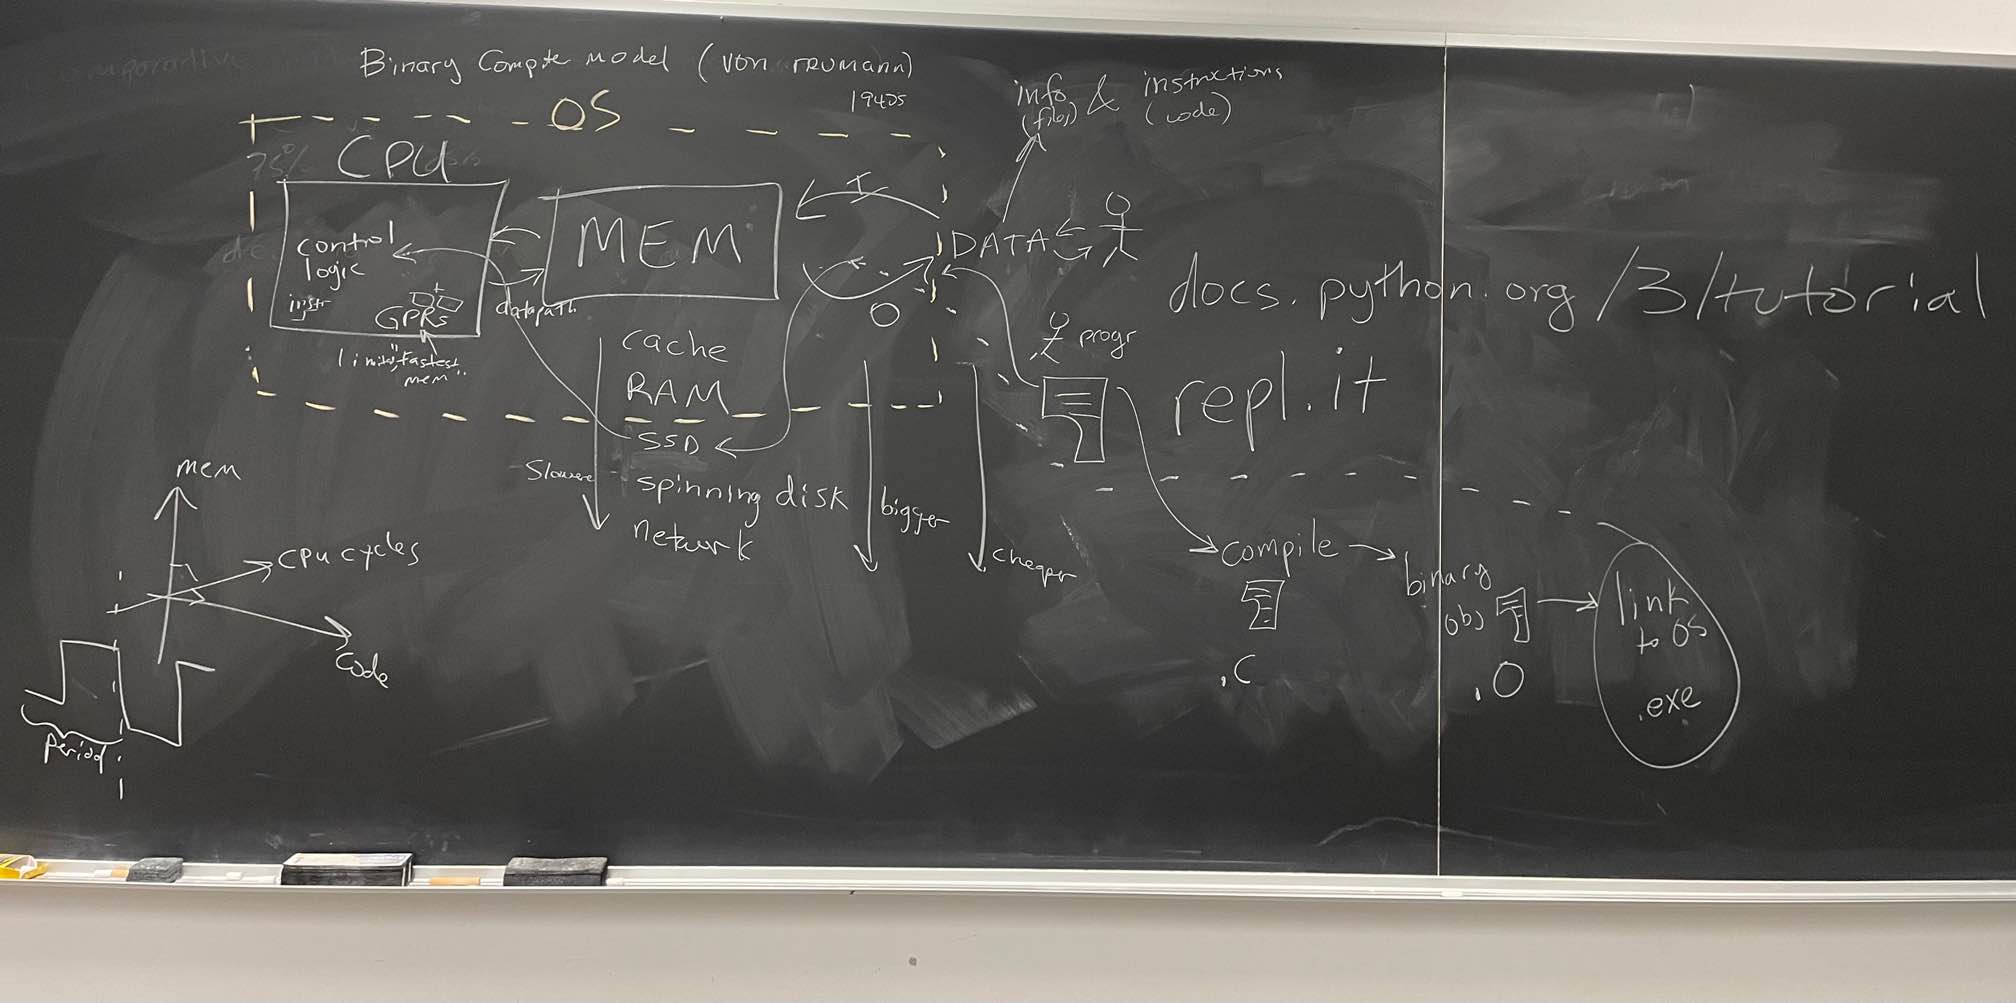 Binary Compute model (von neumann)
1940s
OS
CPU
control
logic
instr
GPRs
limited, "fastest
mem"
datapath
MEM
I
O
DATA
info & instructions
(files) (code)
cache
RAM
SSD
spinning disk
network
slower
bigger
cheaper
progr
docs.python.org/3/tutorial
repl.it
compile
.C
binary
obj
.O
link
to OS
.exe
mem
CPU cycles
code
period